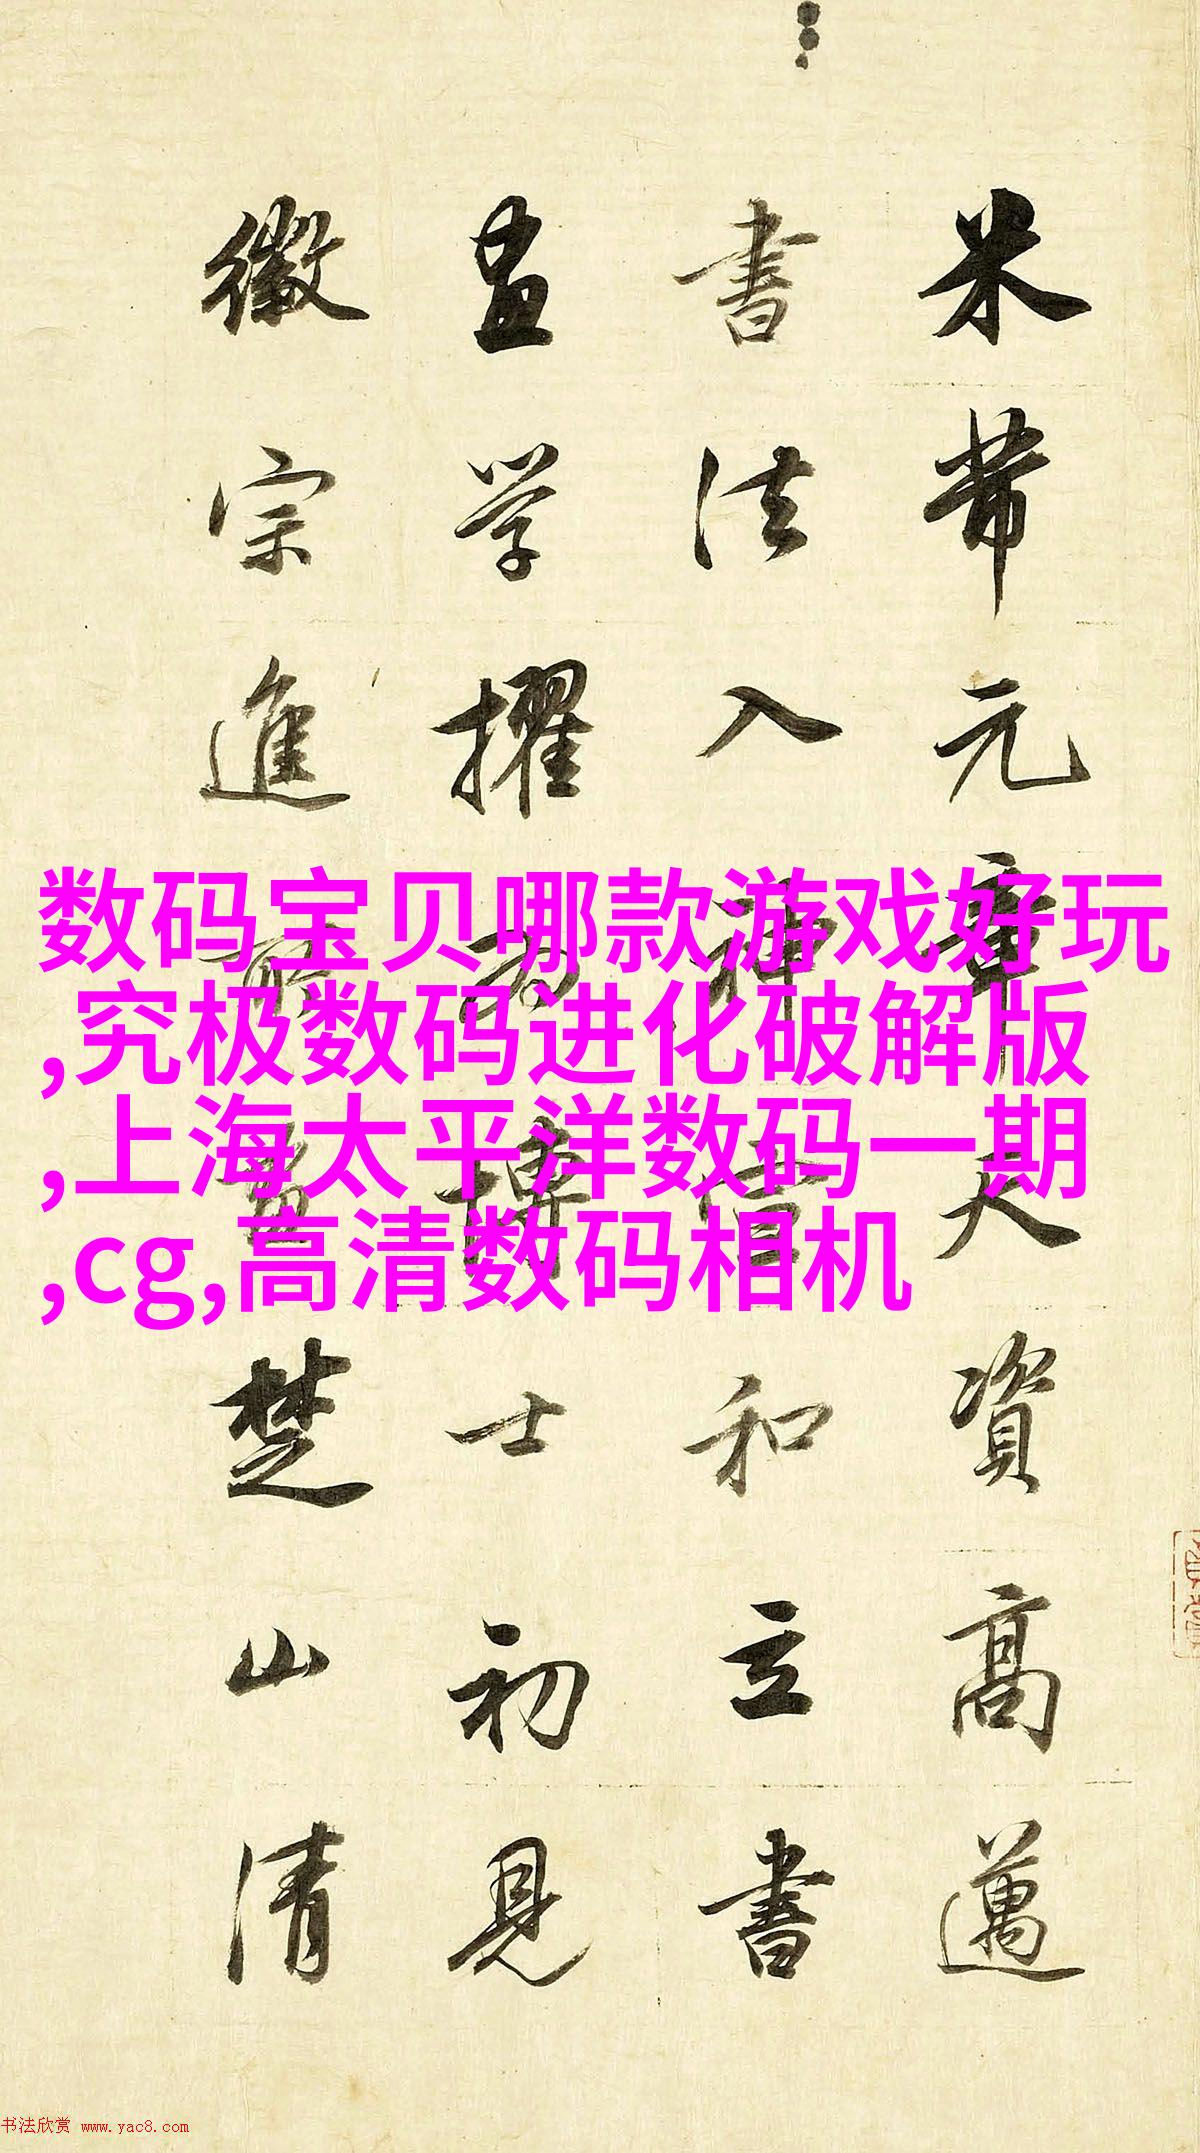 米芾元章天資高邁
書法入神宣和立書
畫学擢為博士初見
徽宗進所畫楚山清
数码宝贝哪款游戏好玩
,究极数码进化破解版
,上海太平洋数码一期
,cg,高清数码相机
书法欣赏 www.yac8.com